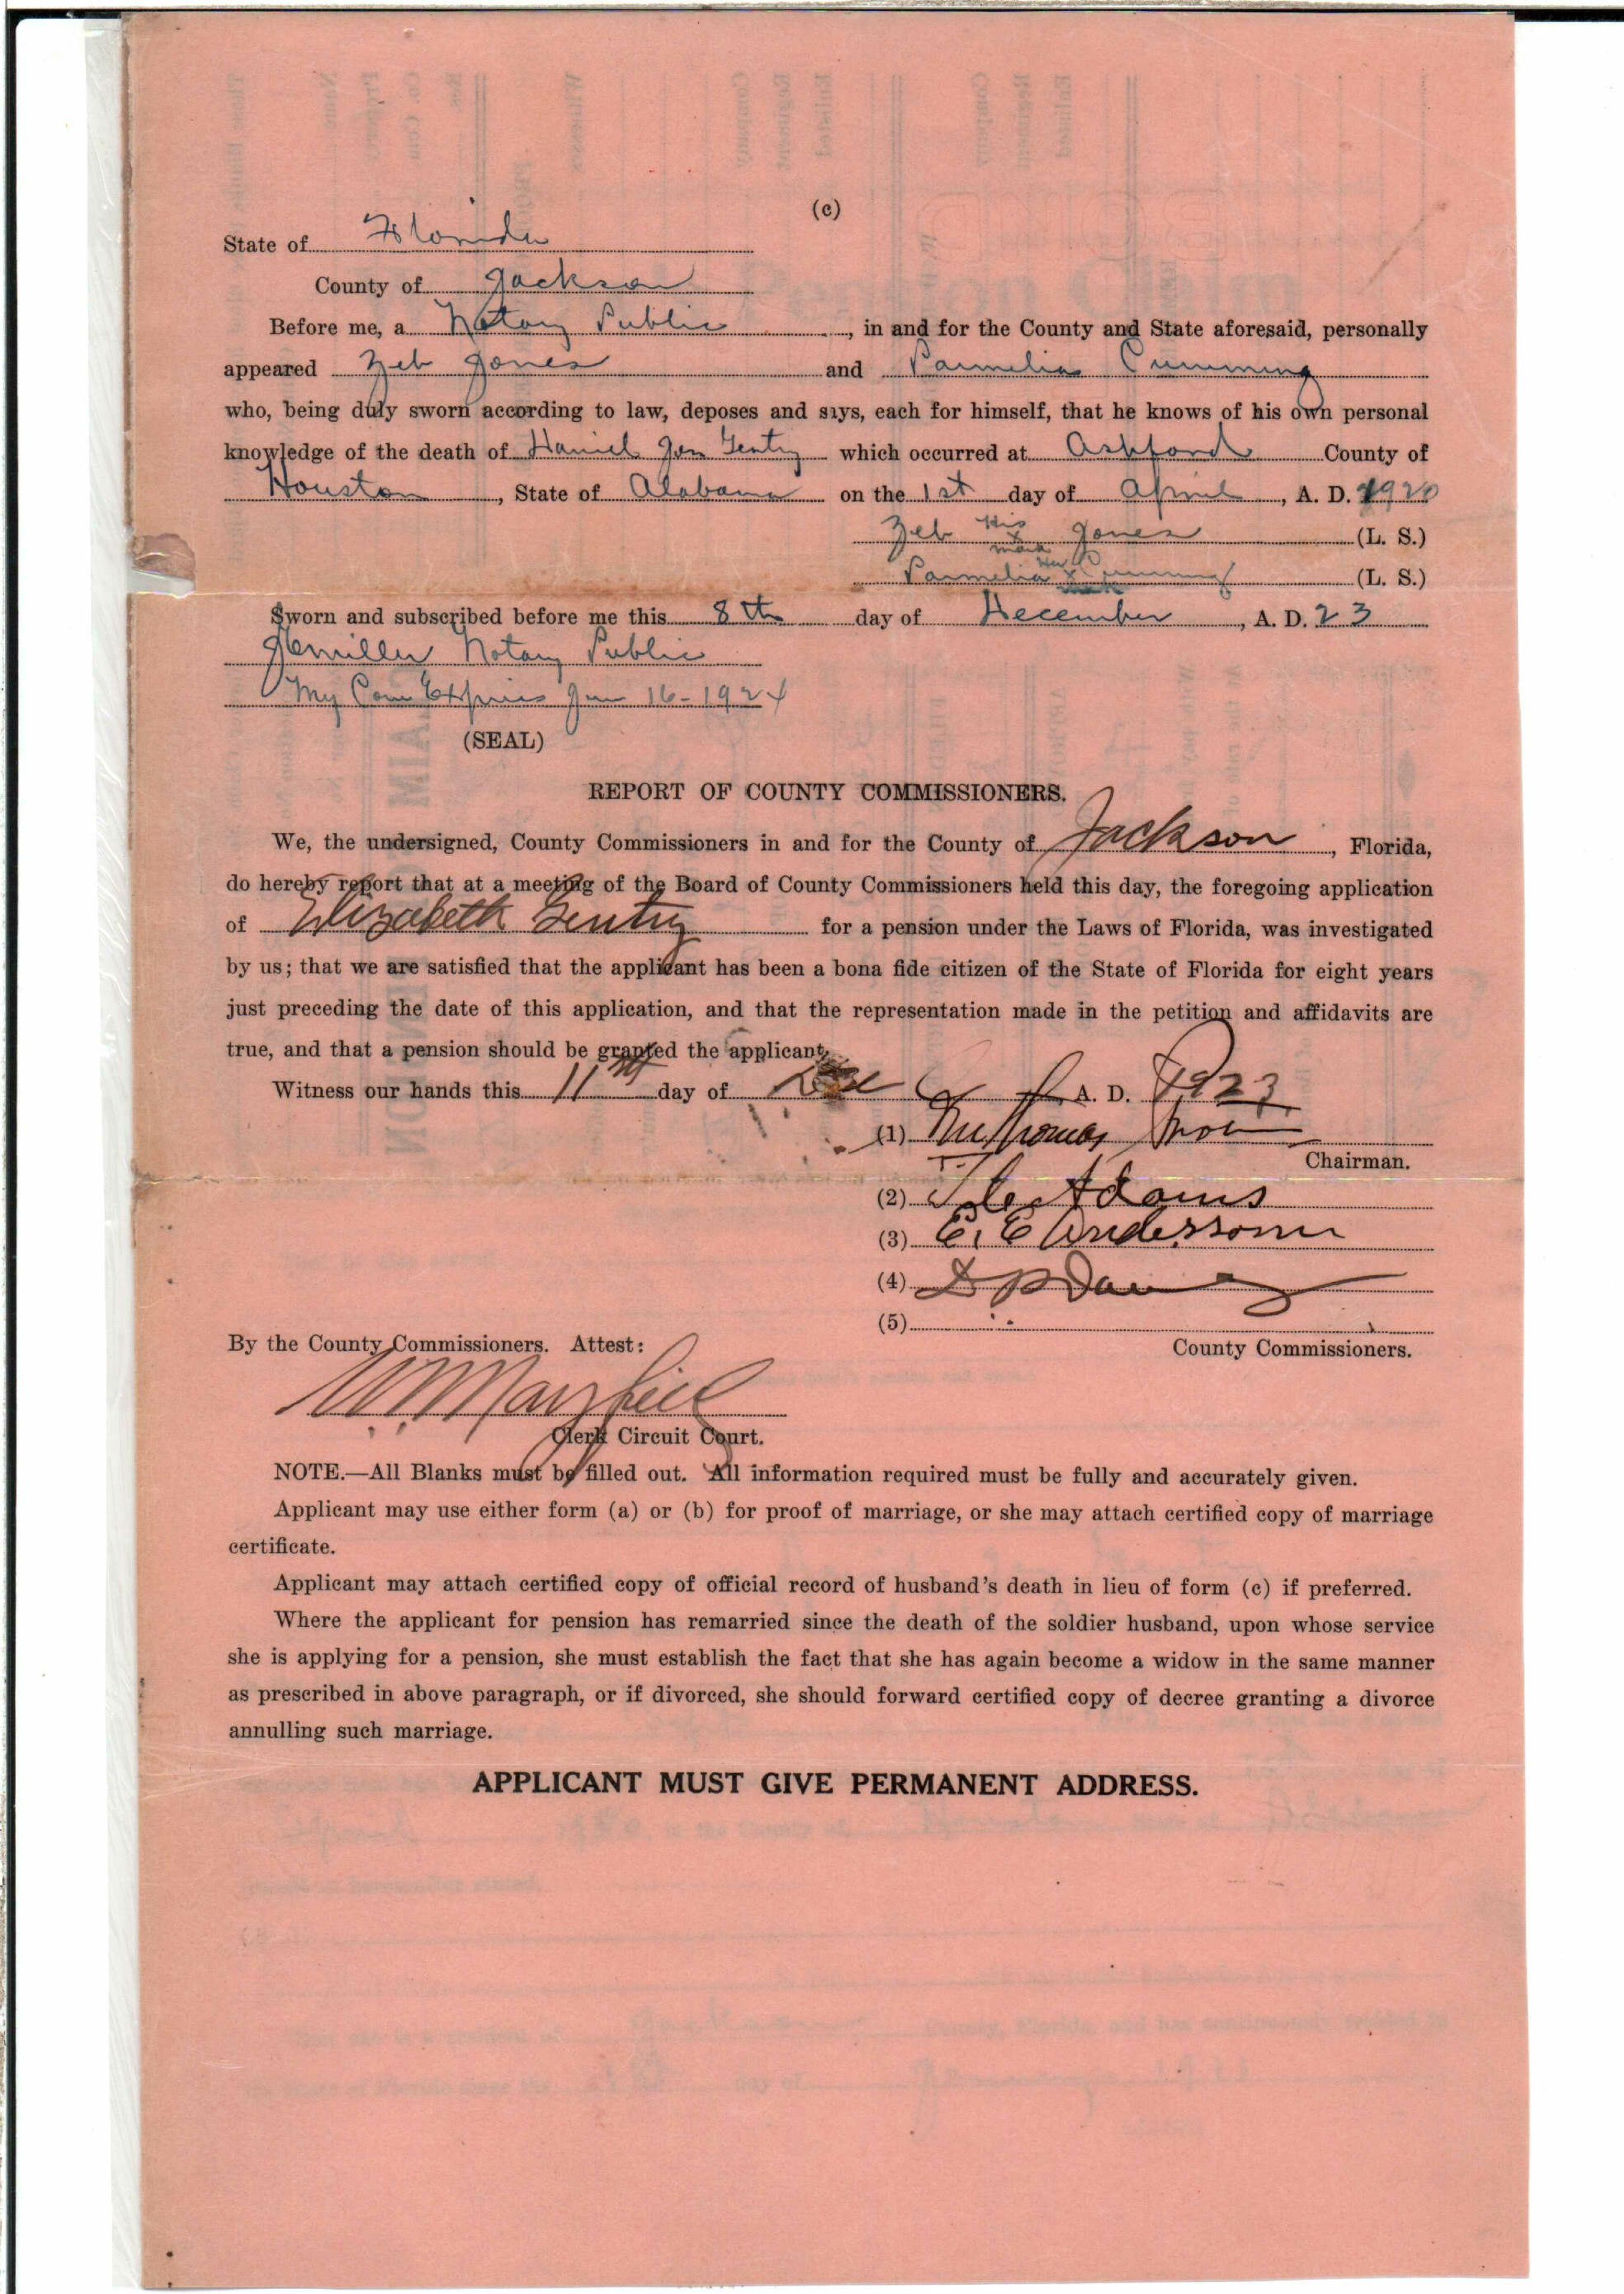 (c)
State of Florida
County of Jackson
Before me, a Notary Public, in and for the County and State aforesaid, personally
appeared Zeb Jones and Parmelia Cumming
who, being duly sworn according to law, deposes and says, each for himself, that he knows of his own personal
knowledge of the death of Daniel Gentry which occurred at Ashford County of
Houston, State of Alabama on the 1st day of April, A. D. 1920
Zeb His x mark Jones (L. S.)
Parmelia Her x mark Cumming (L. S.)
Sworn and subscribed before me this 8th day of December, A. D. 23
Notary Public
My Com Expires Jan 16-1924
(SEAL)
REPORT OF COUNTY COMMISSIONERS.
We, the undersigned, County Commissioners in and for the County of Jackson, Florida,
do hereby report that at a meeting of the Board of County Commissioners held this day, the foregoing application
of Elizabeth Gentry for a pension under the Laws of Florida, was investigated
by us; that we are satisfied that the applicant has been a bona fide citizen of the State of Florida for eight years
just preceding the date of this application, and that the representation made in the petition and affidavits are
true, and that a pension should be granted the applicant.
Witness our hands this 11th day of Dec A. D. 1923
(1) Thomas
Chairman.
(2) Adams
(3) E. E. Anderson
(4)
(5)
By the County Commissioners. Attest:
County Commissioners.
Clerk Circuit Court.
NOTE.—All Blanks must be filled out. All information required must be fully and accurately given.
Applicant may use either form (a) or (b) for proof of marriage, or she may attach certified copy of marriage
certificate.
Applicant may attach certified copy of official record of husband's death in lieu of form (c) if preferred.
Where the applicant for pension has remarried since the death of the soldier husband, upon whose service
she is applying for a pension, she must establish the fact that she has again become a widow in the same manner
as prescribed in above paragraph, or if divorced, she should forward certified copy of decree granting a divorce
annulling such marriage.
APPLICANT MUST GIVE PERMANENT ADDRESS.